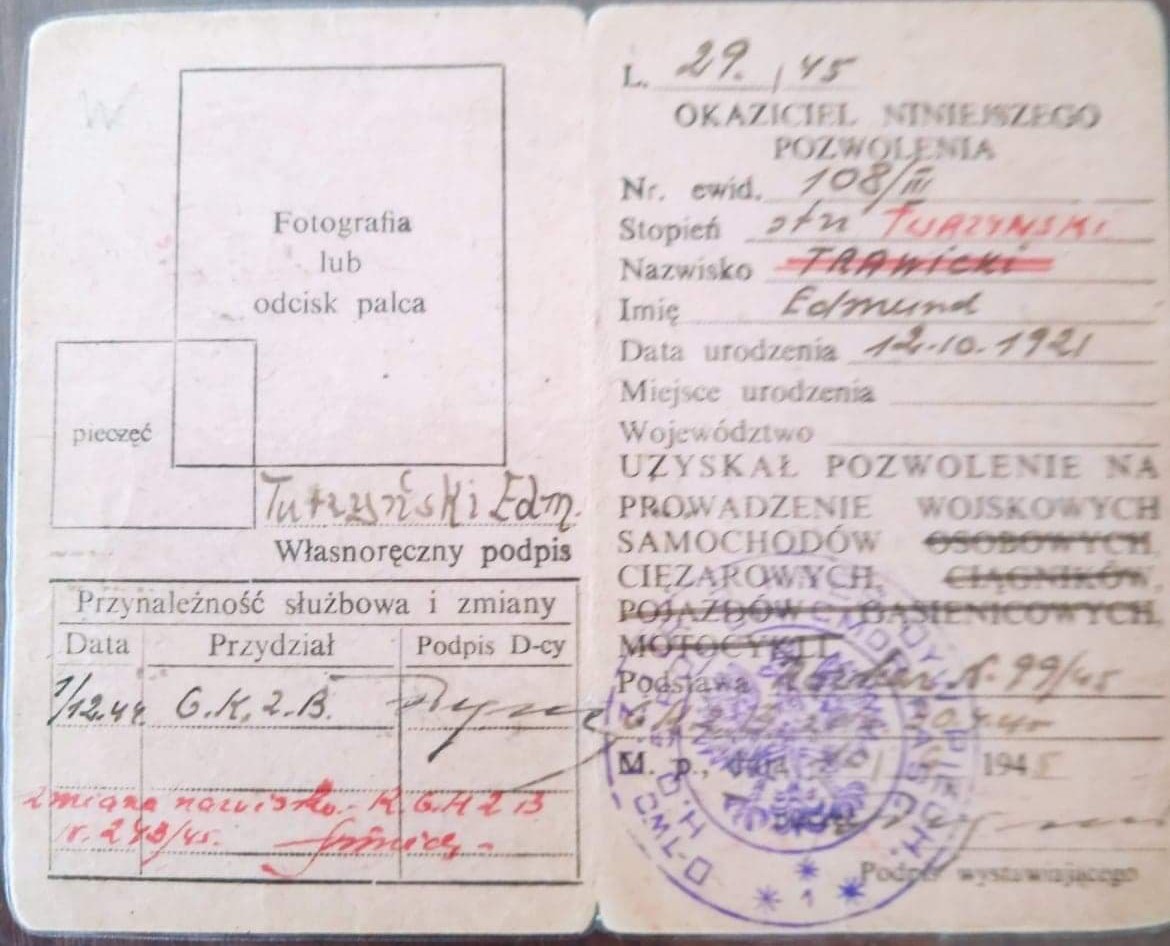 W
Fotografia
lub
odcisk palca
pieczęć
Turzyński Edm.
Własnoręczny podpis
Przynależność służbowa i zmiany
Data Przydział Podpis D-cy
1/12.44 G.K.2.B.
zmiana nazwiska - R. G.K 2 B
r. 243/45.
L. 29. / 45
OKAZICIEL NINIEJSZEGO
POZWOLENIA
Nr. ewid. 108/III
Stopień TURZYNSKI
Nazwisko TRAWICKI
Imię Edmund
Data urodzenia 12.10.1921
Miejsce urodzenia
Województwo
UZYSKAŁ POZWOLENIE NA
PROWADZENIE WOJSKOWYCH
SAMOCHODÓW OSOBOWYCH,
CIĘŻAROWYCH, CIĄGNIKÓW,
POJAZDÓW GĄSIENICOWYCH,
MOTOCYKLI
Podstawa 99/45
M. p., dnia 1945
Podpis wystawiającego
* 1 *